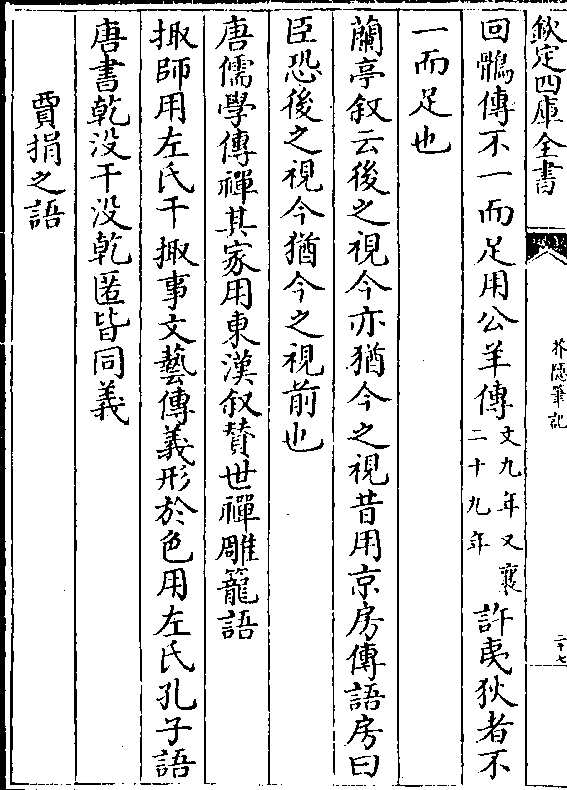 欽定四庫全書
芥隱筆記
二十七
回鶻傳不一而足用公羊傳文九年又襄二十九年許夷狄者不
一而足也
蘭亭叙云後之視今亦猶今之視昔用京房傳語房曰
臣恐後之視今猶今之視前也
唐儒學傳禪其家用東漢叙贊世禪雕籠語
掫師用左氏干掫事文藝傳義形於色用左氏孔子語
唐書乾没干没乾匿皆同義
賈捐之語